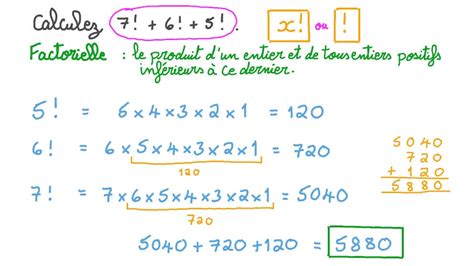 Calculez 7! + 6! + 5!. x! ou !
Factorielle : le produit d'un entier et de tous entiers positifs
inférieurs à ce dernier.
5! = 6×4×3×2×1 = 120
6! = 6×5×4×3×2×1 = 720
120
7! = 7×6×5×4×3×2×1 = 5040
720
5040
720
+ 120
5880
5040 + 720 + 120 = 5880